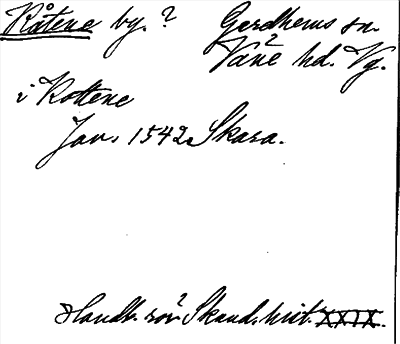 Råtene by. ? Gerdhems sn.
Väne hd. Vg.
i Rottene
Jan. 1542 Skara.
Handl. rör. Skand. hist. XXIX.